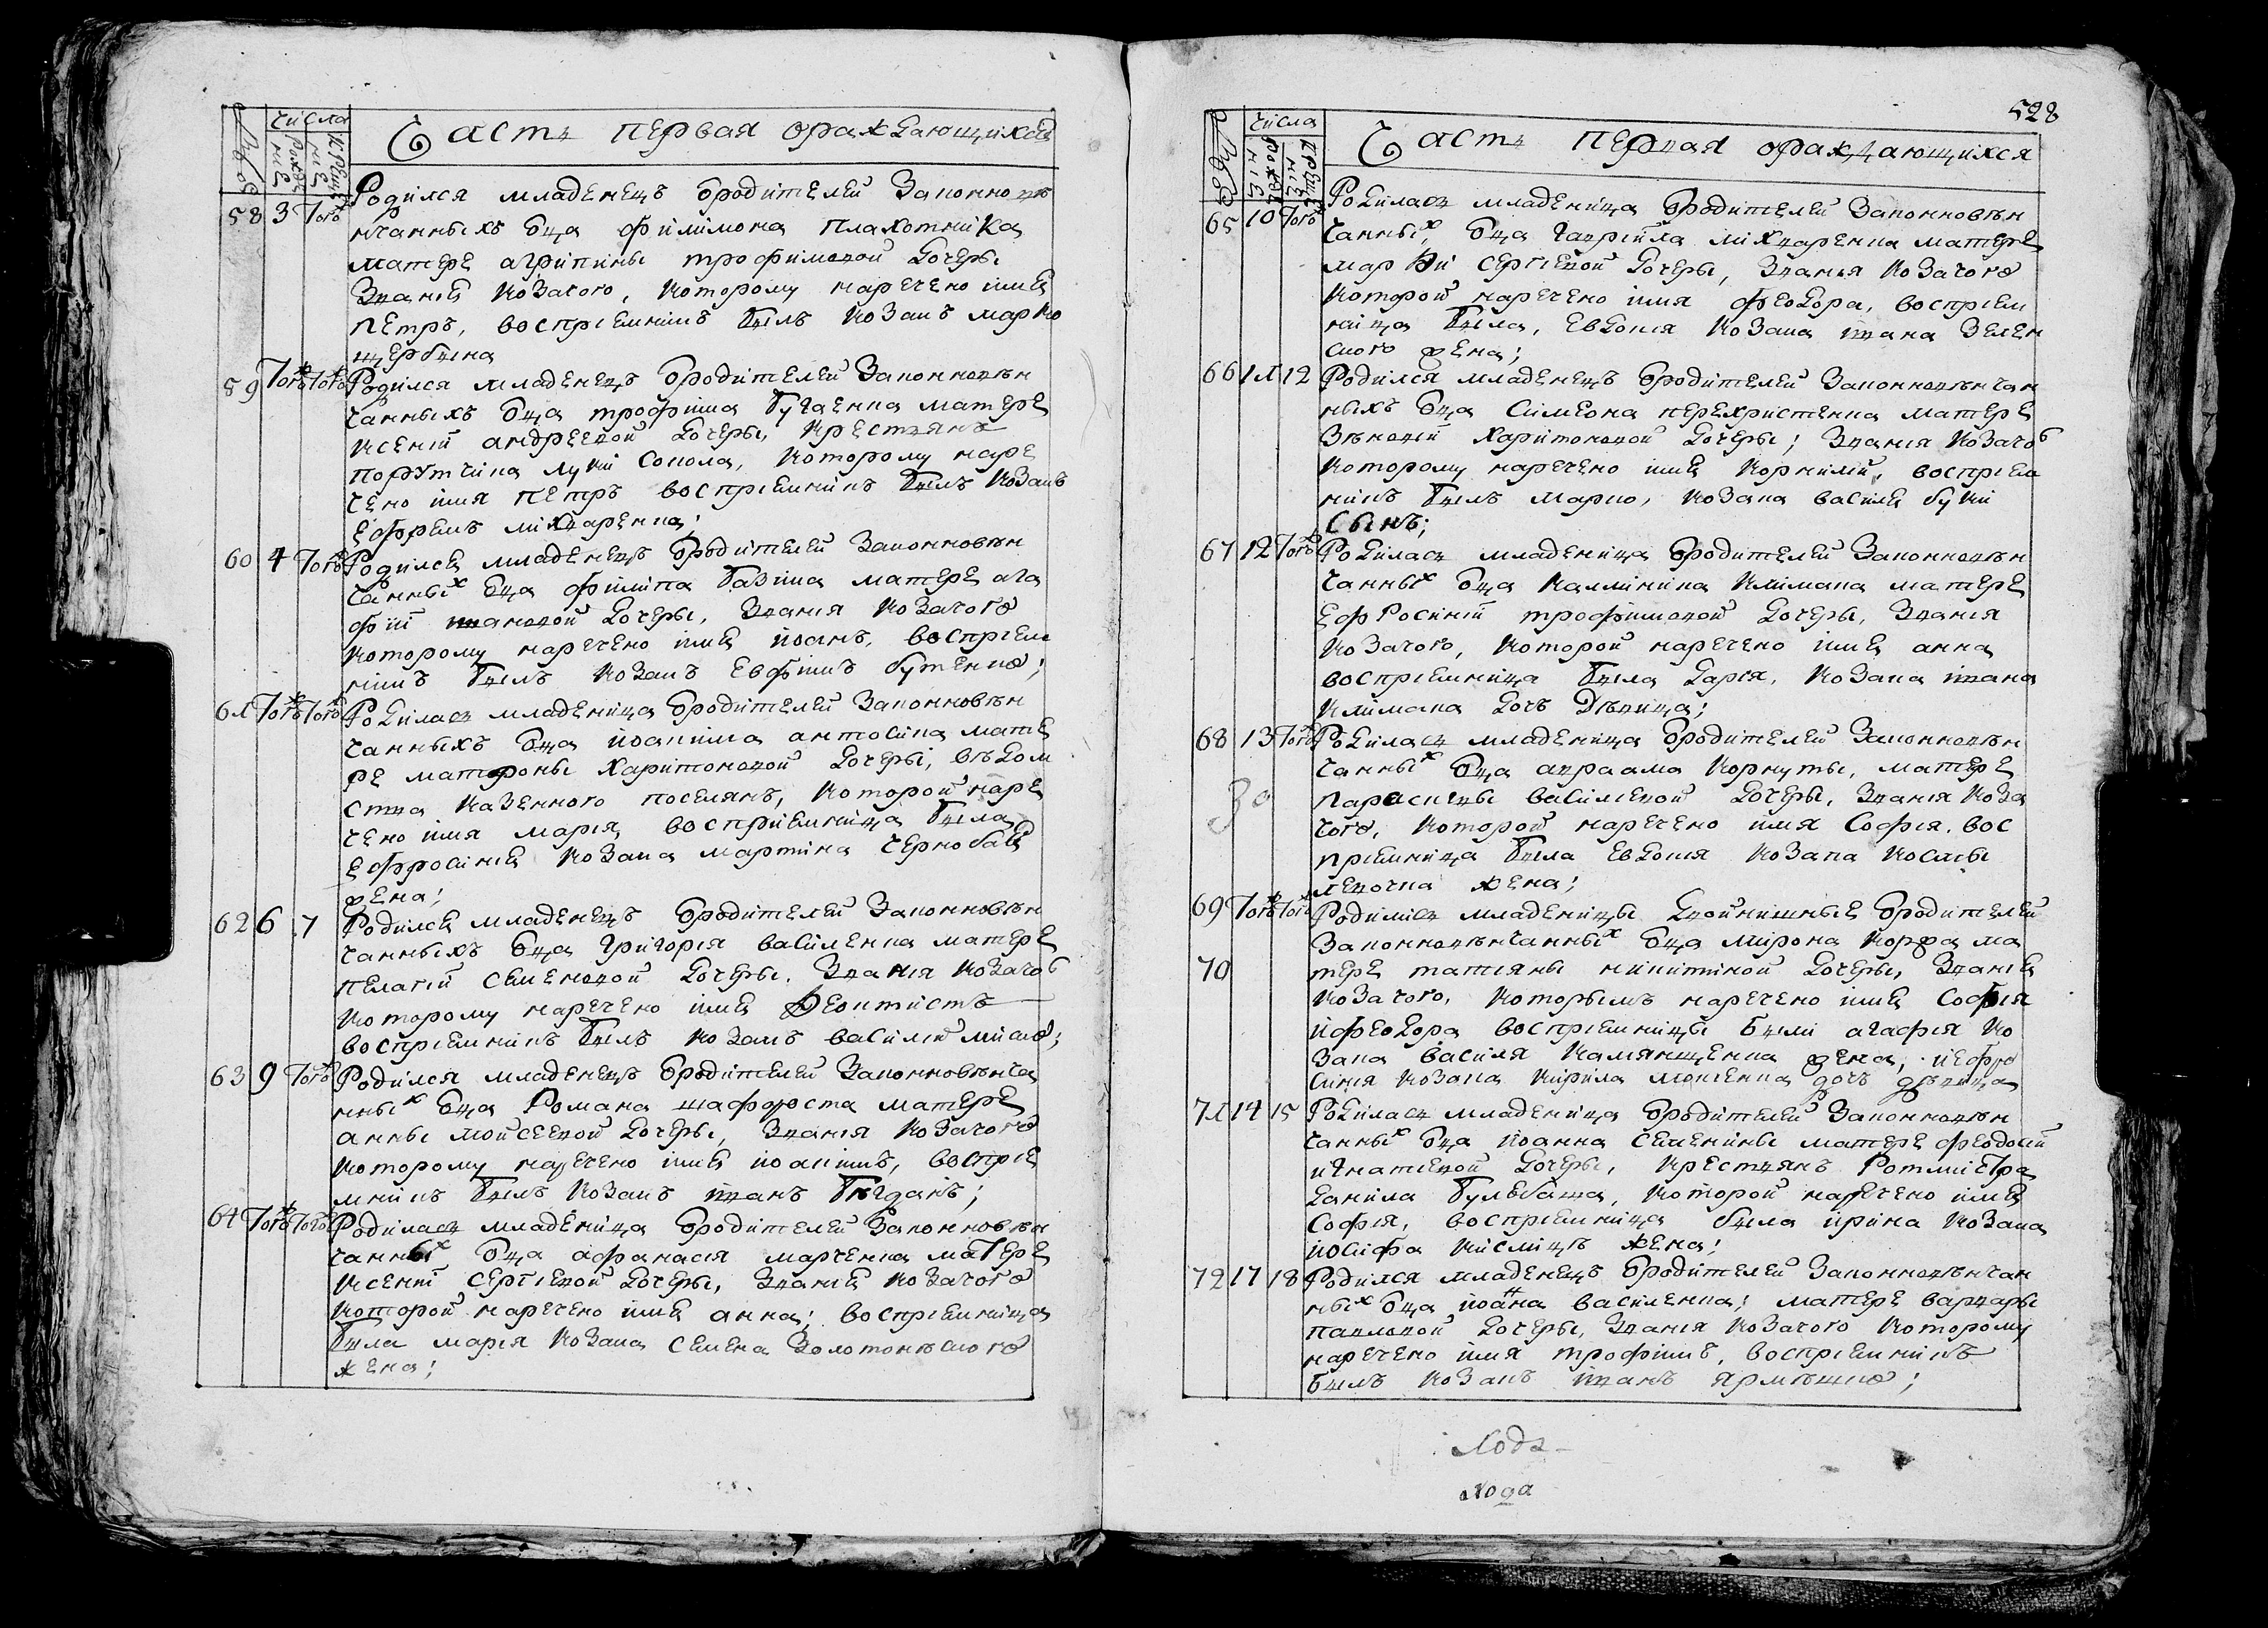 числа
рожде нiе
креще нiе
Часть первая ораждающихся
58 3 Того
Родился младенецъ Öродителей Законновѣ
нчанныхъ Öца филимона плахотника
матере агрипины трофимовой дочеры
Званiя козачого, которому наречено имя
петръ, воспрiемникъ былъ козакъ марко
щербына
59 Тогож Тогож Родился младенецъ Öродителей Законновѣн
чанныхъ Öца трофима бугаенка матере
ксенiи андреевой дочеры, крестьянъ
порутчика луки Сокола, которому наре
чено имя петръ воспрiемникъ былъ козакъ
ефремъ михаренка;
60 4 Того Родился младенецъ Öродителей Законновѣн
чанных Öца филипа базима матере ага
фiи ивановой дочеры, Званiя козачого
которому наречено имя иоанъ, воспрiем
никъ былъ козакъ Евфимъ бутенко;
61 Тогож Тогож Родилась младеница Öродителей Законновѣн
чанныхъ Öца иоакима антосика мате
ре матроны харитоновой дочеры, вѣдом
ства казенного поселянъ, которой наре
чено имя марiя, воспрiемница была
ефросинiя козака мартина чернобая
жена;
62 6 7 Родился младенецъ Öродителей Законновѣн
чанныхъ Öца григорiя василенка матере
пелагiи семеновой дочеры. Званiя козачого
которому наречено имя феоктистъ
воспрiемникъ былъ козакъ василий миско;
63 9 Того Родился младенецъ Öродителей Законновѣнча
нных Öца Романа шафороста матере
анны мойсеевой дочеры, Званiя козачого
которому наречено имя иоакимъ, воспрiе
мникъ былъ козакъ иванъ богданъ;
64 Тогож Тогож Родилась младеница Öродителей Законновѣн
чанных Öца афанасiя марченка матере
ксенiи сергiевой дочеры, Званiя козачого
которой наречено имя анна; воспрiемница
была марiя козака семена Золотонѣского
жена;
528
числа
рожде нiе
креще нiе
Часть Первая ораждающихся
65 10 Того
Родилась младеница Öродителей Законновѣн
чанных, Öца гаврiила михаренка матере
марфи сергiевой дочеры, Званья козачого
которой наречено имя феодора, воспрiем
ница была, Евдокiя козака ивана Зелен
ского жена;
66 11 12 Родился младенецъ Öродителей Законновѣнчан
ныхъ Öца симеона перехристенка матере
Зѣновiи харитоновой дочеры; Званiя козачого
которому наречено имя корнилий, воспрiем
никъ былъ марко, козака василя буки
сынъ;
67 12 Того Родилась младеница Öродителей Законновѣн
чанных Öца каллиника климака матере
ефросинiи трофимовой дочеры, Званiя
козачого, которой наречено имя анна
воспрiемница была дарiя, козака ивана
климака дочь дѣвица;
68 13 Того Родилась младеница Öродителей Законновѣн
чанных Öца авраама корнуты, матере
параскевы василiевой дочеры, Званiя коза
чого, которой наречено имя Софiя, вос
прiемница была Евдокiя козака космы
левочка жена;
69 Тогож Тогож Родились младеницы двойнишные Öродителей
Законновѣнчанных Öца мирона коржа ма
70
тере татiяны никитиной дочеры, Званiя
козачого, которымъ наречено имя Софiя
и феодора воспрiемницы были агафiя ко
зака василя камянщенка жена, и ефро
синiя козака кирила мокiенка дочь дѣвица
71 14 15 Родилась младеница Öродителей Законновѣн
чанных Öца иоанна семенины матере феодосии
игнатiевой дочеры, крестьянъ Ротмистра
данила бульбаша, которой наречено имя
софiя, воспрiемница была ирина козака
иосифа кислицѣ жена;
72 17 18 Родился младенецъ Öродителей Законновѣнчан
ных Öца иоанна василенка; матере варвары
павловой дочеры, Званiя козачого которому
наречено имя трофимъ, воспрiемникъ
былъ козакъ иванъ ярмѣшко;